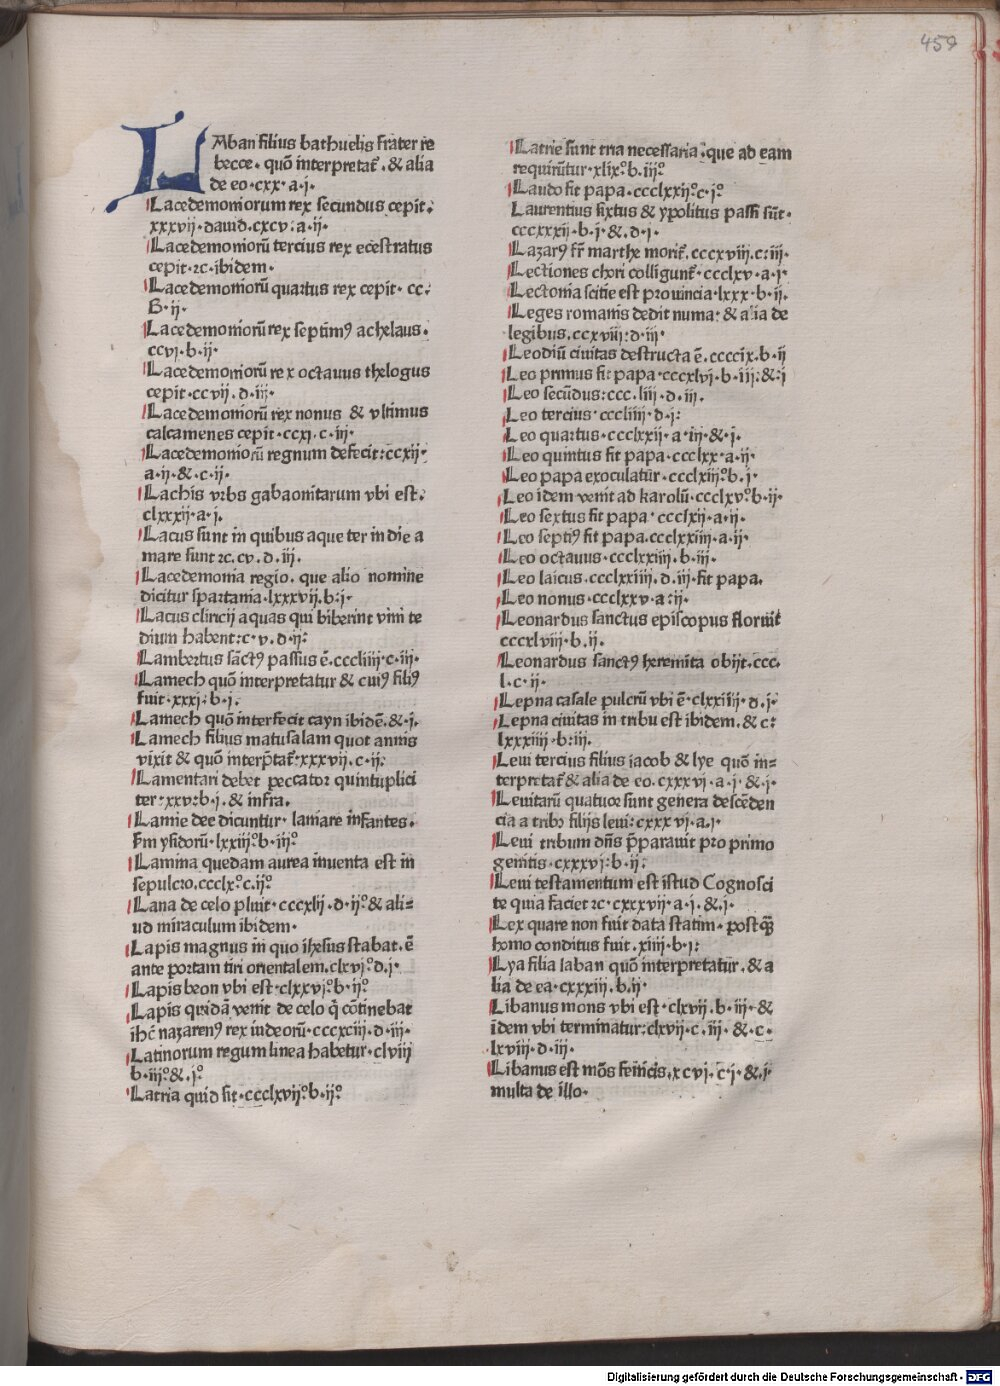 459
LAban filius bathuelis frater re
becce· quō interpretat̄·& alia
de eo·cxx·a·i·
Lacedemoniorum rex secundus cepit·
xxxvii·dauid·cxcv·a·ii·
Lacedemoniorū tercius rex ecestratus
cepit·⁊c·ibidem·
Lacedemoniorū quartus rex cepit· cc·
B·ij·
Lacedemoniorū rex septimꝰ achelaus·
ccvi·b·ij·
Lacedemoniorū rex octauus thelogus
cepit·ccvij·d·iij·
Lacedemoniorū rex nonus & vltimus
calcamenes cepit·ccxi·c·iij·
Lacedemoniorū regnum defecit:ccxij·
a·ij·&·c·ij·
Lachis vrbs gabaonitarum vbi est·
clxxxij·a·i·
Lacus sunt in quibus aque ter in die a
mare sunt ⁊c·cv·d·iij·
Lacedemonia regio· que alio nomine
dicitur spartania·lxxxvij·b·i·
Lacus clincij aquas qui biberint vini te
dium habent:c·v·d·ij:
Lambertus sāctꝰ passus ē·cccliiij·c·iij·
Lamech quō interpretatur & cuiꝰ filiꝰ
fuit·xxxi·b·i·
Lamech quō interfecit cayn ibidē·&·i·
Lamech filius matusalam quot annis
vixit & quō interp̄tat̄·xxxvij·c·ij·
Lamentari debet peccator quintuplici
ter·xxv·b·i·& infra·
Lamie dee dicuntur· laniare infantes·
Fm ysidorū·lxxiijº·b·iijº
Lamina quedam aurea inuenta est in
sepulcro·ccclxº·c·ijº
Lana de celo pluit·cccxlij·d·ijº& ali=
ud miraculum ibidem·
Lapis magnus in quo ihesus stabat·ē
ante portam tiri orientalem·clxviº·d·i·
Lapis beon vbi est·clxxviº·b·ijº
Lapis quidā venit de celo q̄ cōtinebat
ihc̄ nazarenꝰ rex iudeorū·cccxciij·d·iij·
Latinorum regum linea habetur·clviij
b·iijº&·iº
Latria quid sit·ccclxvijº·b·ijº
Latrie sunt tria necessaria·que ad eam
requirūtur·xlixº·b·iijº
Laudo fit papa·ccclxxijº·c·iº
Laurentius sixtus & ypolitus passi sūt·
cccxxxij·b·i·&·d·i·
Lazarꝰ fr̄ marthe morit̄·cccxviij·c·iij·
Lectiones chori colligunt̄·ccclxv·a·i·
Lectonia scitie est prouincia·lxxx·b·ij·
Leges romanis dedit numa· & alia de
legibus·ccxviij·d·iij·
Leodiū ciuitas destructa ē·ccccix·b·ij
Leo primus fit papa·cccxlvi·b·iij·&·i
Leo secūdus:ccc·liij·d·iij·
Leo tercius·cccliiij·d·i·
Leo quartus·ccclxxij·a·iij·&·i·
Leo quintus fit papa·ccclxx·a·ij·
Leo papa exoculatur·ccclxiijº·b·i·
Leo idem venit ad karolū·ccclxvº·b·ij·
Leo sextus fit papa·ccclxij·a·ij·
Leo septiꝰ fit papa·ccclxxiiij·a·ij·
Leo octauus·ccclxxiiij·b·iij·
Leo laicus·ccclxxiiij·d·iij·fit papa·
Leo nonus·ccclxxv·a·ij·
Leonardus sanctus episcopus floruit
cccxlviij·b·ij·
Leonardus sanctꝰ heremita obijt·ccc·
l·c·ij·
Lepna casale pulcrū vbi ē·clxxiiij·d·i·
Lepna ciuitas in tribu est ibidem·& c·
lxxxiiij·b·iij·
Leui tercius filius iacob & lye quō in=
terpretat̄ & alia de eo·cxxxvi·a·i·&·i·
Leuitarū quatuor sunt genera descēden
cia a tribꝰ filijs leui:cxxxvi·a·i·
Leui tribum dn̄s p̄parauit pro primo
genitis·cxxxvi·b·ij·
Leui testamentum est istud Cognosci
te quia faciet ⁊c·cxxxvij·a·i·&·i·
Lex quare non fuit data statim· postq̄
homo conditus fuit·xiiij·b·i·
Lya filia laban quō interpretatur·& a
lia de ea·cxxxiij·b·ij·
Libanus mons vbi est·clxvij·b·iij·&
idem vbi terminatur:clxvij·c·iij· &·c·
lxviij·d·iij·
Libanus est mōs fenicis·xcvi·c·i·&·i·
multa de illo·
Digitalisierung gefördert durch die Deutsche Forschungsgemeinschaft · DFG